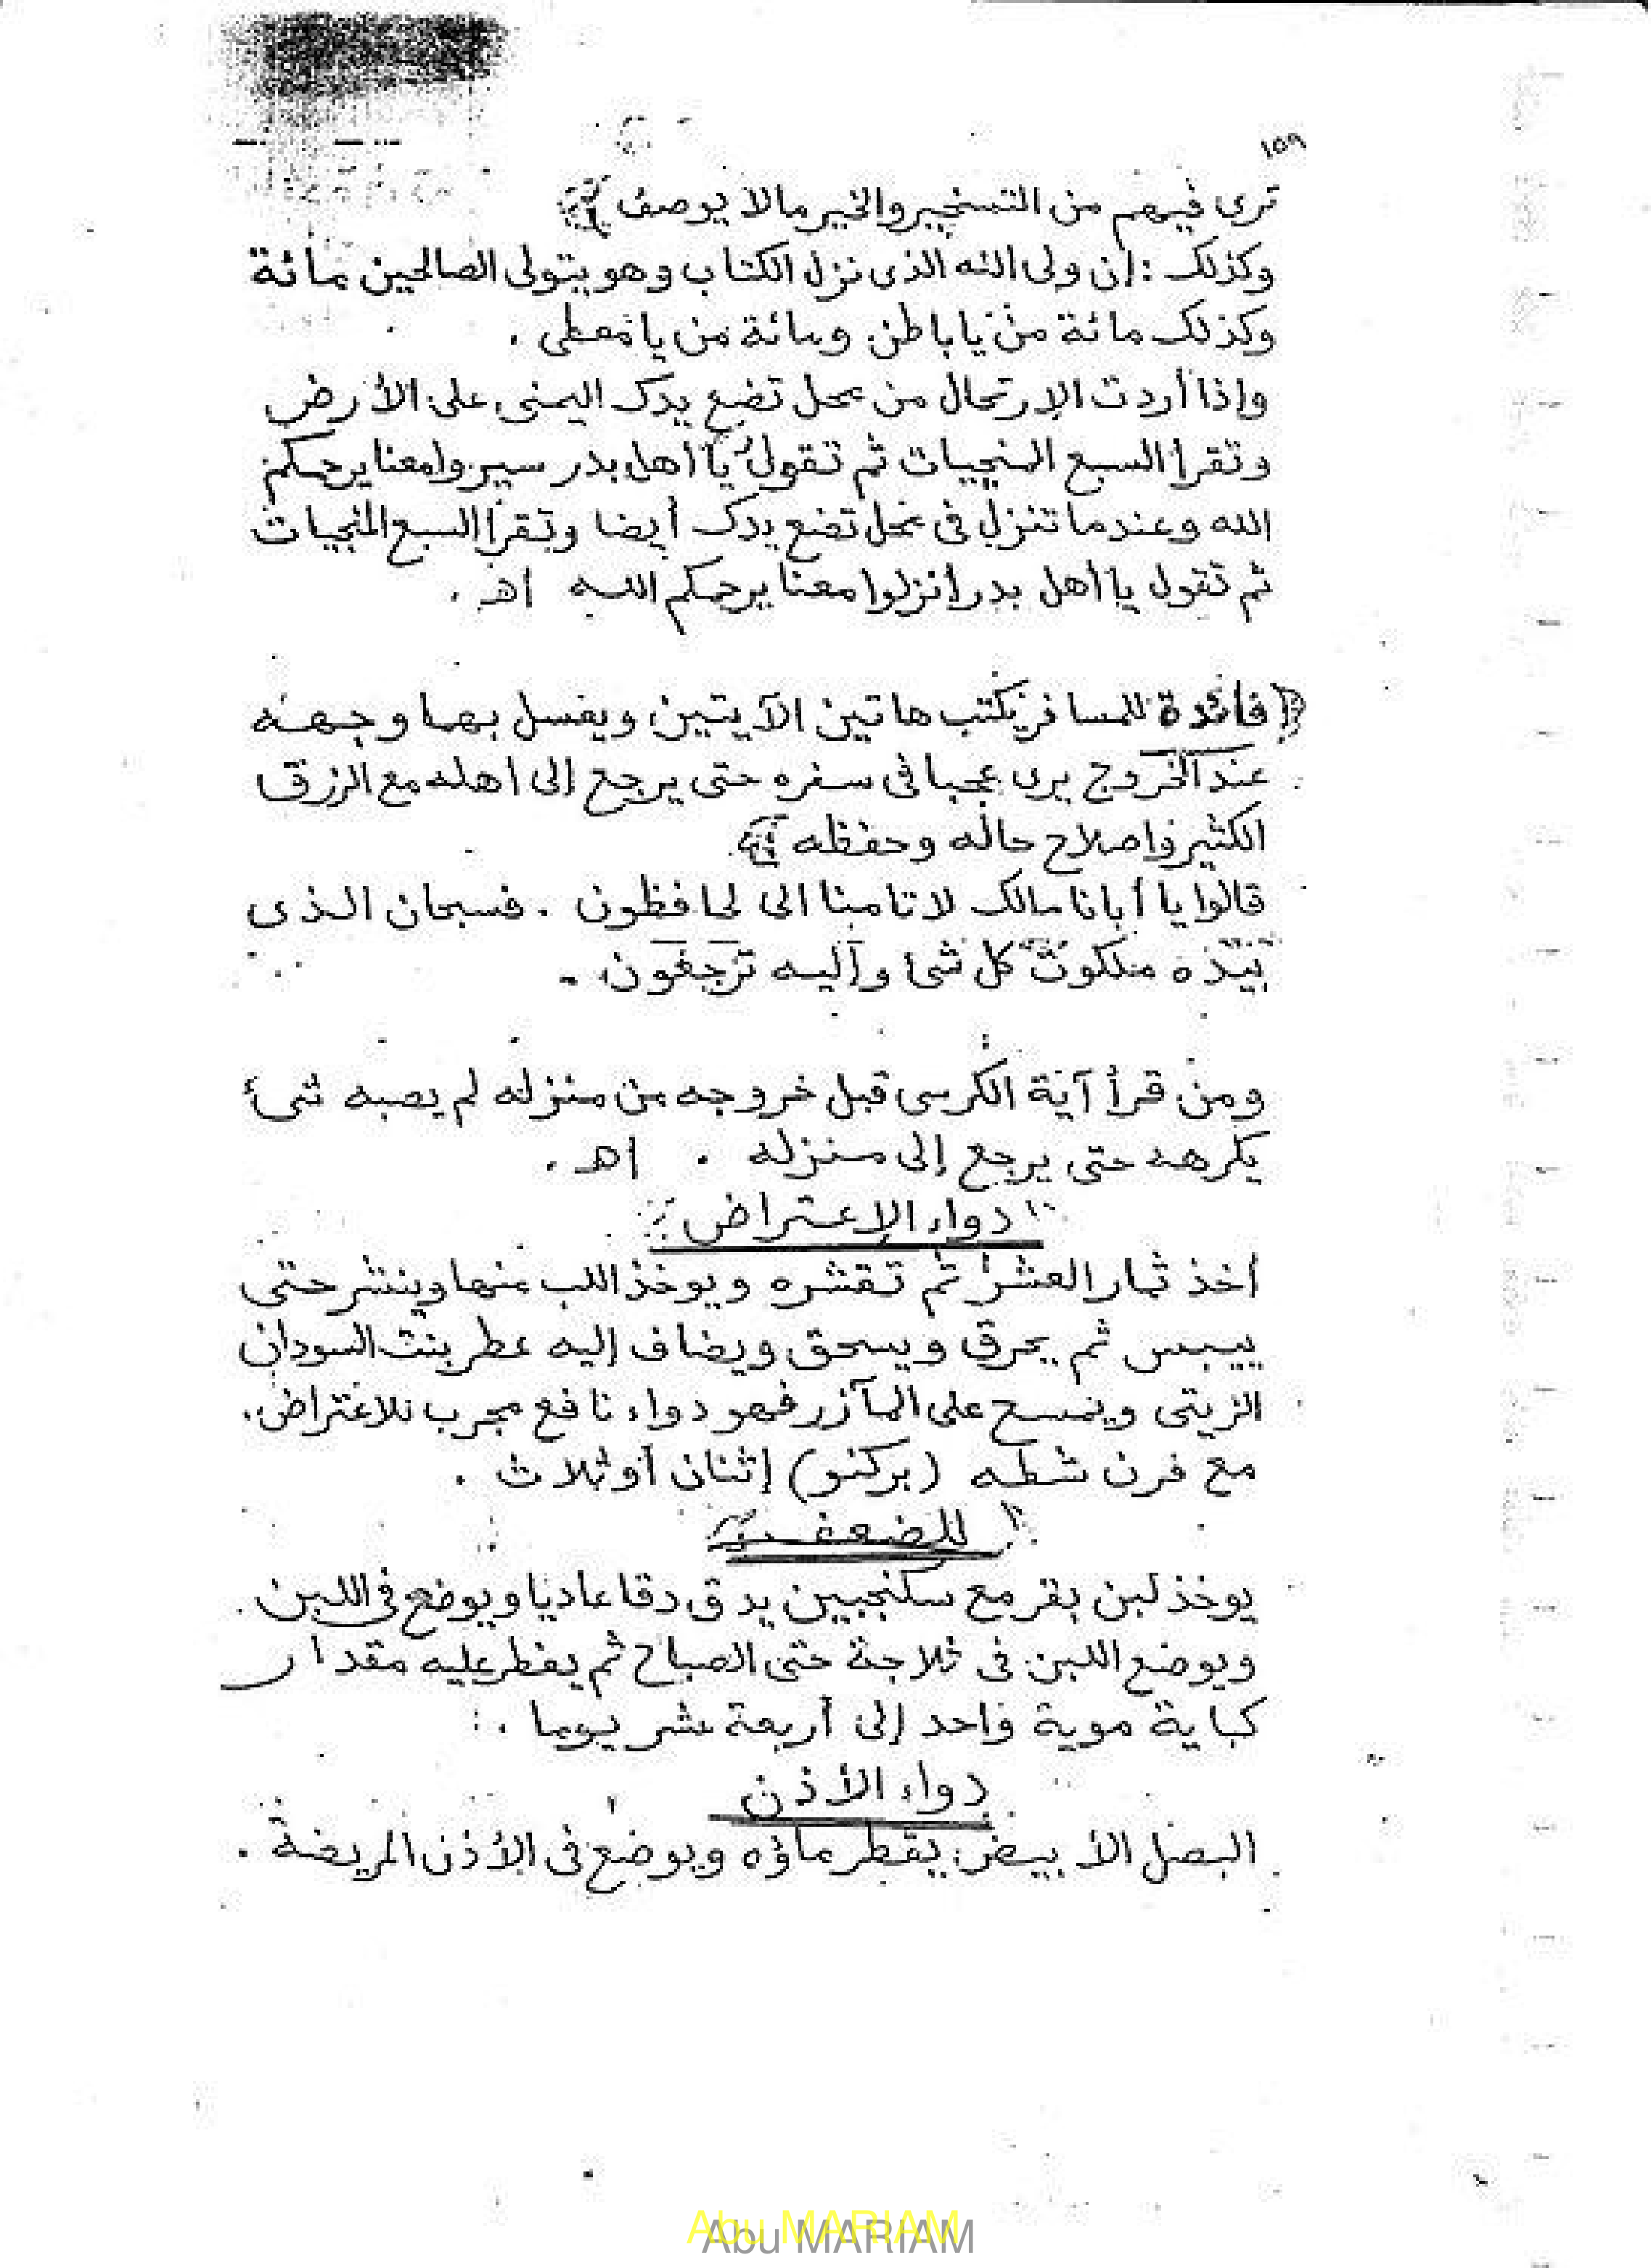 ١٥٩
ترى فيهم من التسخير والخير مالا يوصف
وكذلك : إن ولى الله الذى نزل الكتاب وهو يتولى الصالحين مائة
وكذلك مائة من يا باطن ومائة من يا معطى .
وإذا أردت الإرتحال من محل تضع يدك اليمنى على الأرض
وتقرأ السبع المنجيات ثم تقول يا أهل بدر سيروا معنا يرحمكم
الله وعندما تنزل فى محل تضع يدك أيضا وتقرأ السبع المنجيات
ثم تقول يا أهل بدر أنزلوا معنا يرحمكم الله اهـ .
فائدة للمسافر يكتب هاتين الآيتين ويغسل بهما وجهه
عند الخروج يرى عجبا فى سفره حتى يرجع إلى اهله مع الرزق
الكثير واصلاح حاله وحفظه
قالوا يا أبانا مالك لا تامنا الى لحافظون . فسبحان الذى
بيده ملكوت كل شئ وإليه ترجعون .
ومن قرأ آية الكرسى قبل خروجه من منزله لم يصبه شئ
يكرهه حتى يرجع إلى منزله . اهـ .
دواء الإعتراض
أخذ ثمار العشر ثم تقشره ويوخذ اللب منها وينشر حتى
ييبس ثم يحرق ويسحق ويضاف إليه عطر بنت السودان
الزيتى ويمسح على المآزر فهو دواء نافع مجرب للاعتراض .
مع قرن شطه (بركنو) إثنان أو ثلاث .
للضعف
يوخذ لبن بقر مع سكنجبين يدق دقا عاديا ويوضع فى اللبن .
ويوضع اللبن فى ثلاجة حتى الصباح ثم يفطر عليه مقدار
كباية موية واحد إلى أربعة عشر يوما .
دواء الأذن
البصل الأبيض يقطر ماؤه ويوضع فى الأذن المريضة .
Abu MARIAM